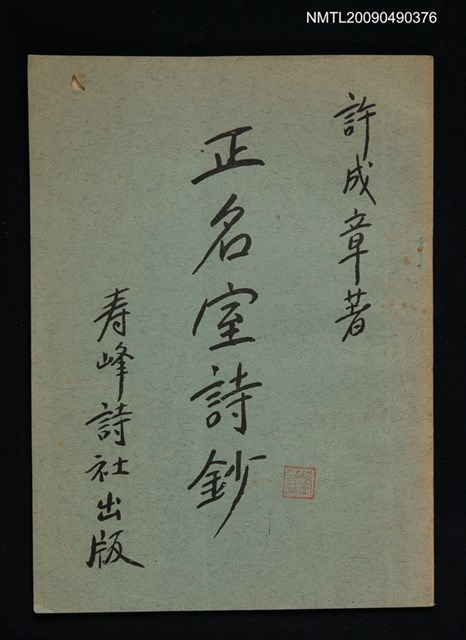 NMTL20090490376
許成章著
正名室詩鈔
寿峰詩社出版